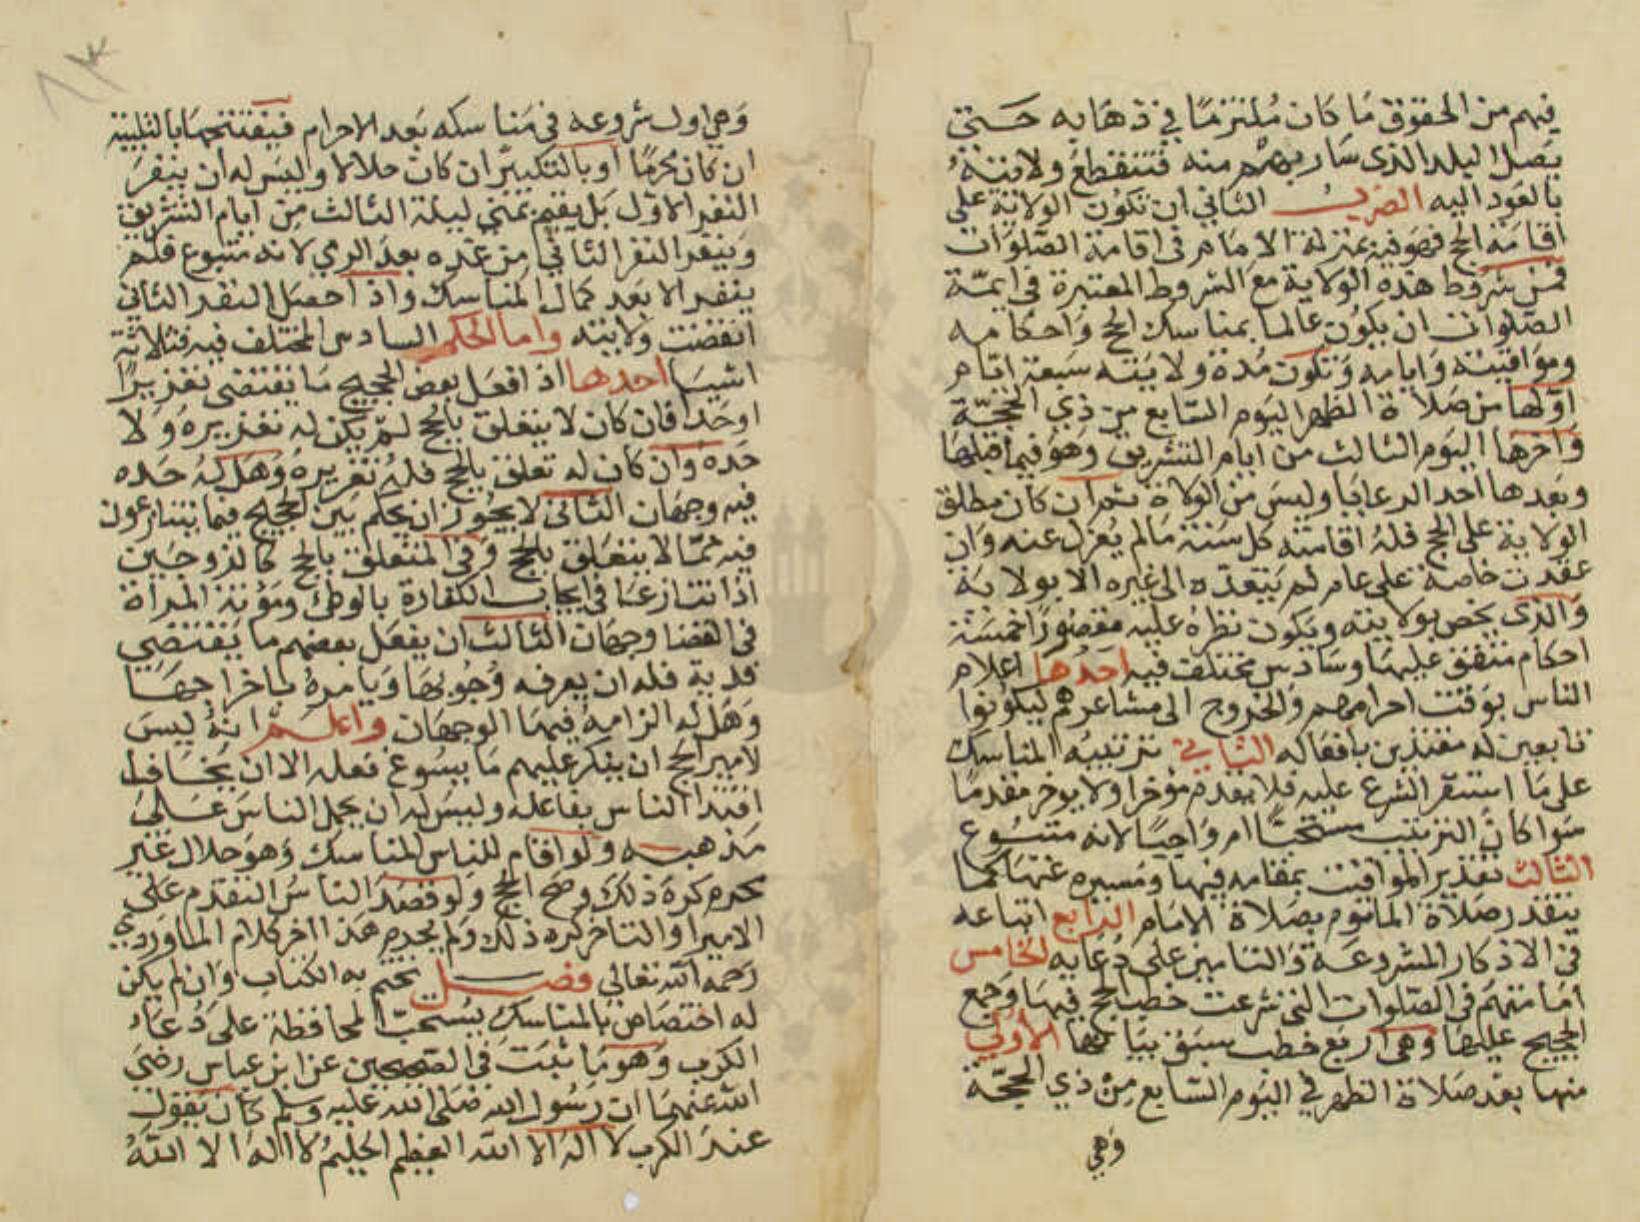 فيهم من الحقوق ما كان ملتزما في ذهابه حتى
يصل البلد الذي سار بهم منه فتنقطع ولايته
بالعود اليه الضرب الثاني ان تكون الولاية على
اقامة الحج فهو فيه بمنزلة الامام في اقامة الصلوات
فمن شروط هذه الولاية مع الشروط المعتبرة في ايمة
الصلوات ان يكون عالما بمناسك الحج واحكامه
ومواقيته وايامه وتكون مدة ولايته سبعة ايام
اولها من صلاة الظهر اليوم السابع من ذي الحجة
واخرها اليوم الثالث من ايام التشريق وهو فيما قبلها
وبعدها احد الرعايا وليس من الولاة ثم ان كان مطلق
الولاية على الحج فله اقامته كل سنة مالم يعزل عنه وان
عقدت خاصة على عام لم يتعده الى غيره الا بولاية
والذي يخص بولايته ويكون نظره عليه مقصورا خمسة
احكام متفق عليها وسادس مختلف فيه احدها اعلام
الناس بوقت احرامهم والخروج الى مشاعرهم ليكونوا
تابعين له مقتدين بافعاله الثاني ترتيبه المناسك
على ما استقر الشرع عليه فلا يقدم مؤخرا ولا يوخر مقدما
سوا كان الترتيب مستحبا ام واجبا لانه متبوع
الثالث تقدير المواقيت بمقامه فيها ومسيره عنها كما
يتقدر صلاة الماموم بصلاة الامام الرابع اتباعه
في الاذكار المشروعة والتامين على دعايه الخامس
امامتهم في الصلوات التي شرعت خطب الحج فيها وجمع
الحجيج عليها وهي اربع خطب سبق بيانها الاولى
منها بعد صلاة الظهر في اليوم السابع من ذي الحجة
وهي
٨٣
وهي اول شروعه في مناسكه بعد الاحرام فيفتتحها بالتلبية
ان كان محرما او بالتكبير ان كان حلالا وليس له ان ينفر
النفر الاول بل يقيم بمنى ليلة الثالث من ايام التشريق
وينفر النفر الثاني من غده بعد الرمي لانه متبوع فلم
ينفر الا بعد كمال المناسك واذا حصل النفر الثاني
انقضت ولايته واما الحكم السادس المختلف فيه فثلاثة
اشيا احدها اذا فعل بعض الحجيج ما يقتضي تعزيرا
او حدا فان كان لا يتعلق بالحج لم يكن له تعزيره ولا
حده وان كان له تعلق بالحج فله تعزيره وهل له حده
فيه وجهان الثاني لا يجوز ان يحكم بين الحجيج فيما يتنازعون
فيه مما لا يتعلق بالحج وفي المتعلق بالحج كالزوجين
اذا تنازعا في ايجاب الكفارة بالوطئ ومؤنة المراة
في القضا وجهان الثالث ان يفعل بعضهم ما يقتضي
فدية فله ان يعرفه وجوبها ويامره باخراجها
وهل له الزامه فيها الوجهان واعلم انه ليس
لامير الحج ان ينكر عليهم ما يسوغ فعله الا ان يخاف
اقتدا الناس بفاعله وليس له ان يحمل الناس على
مذهبه ولو اقام للناس المناسك وهو حلال غير
محرم كره ذلك وصح الحج ولو قصد الناس التقدم على
الامير او التاخر كره ذلك ولم يحرم هذا اخر كلام الماوردي
رحمه الله تعالى فصل نختم به الكتاب وان لم يكن
له اختصاص بالمناسك يستحب المحافظة على دعاء
الكرب وهو ما ثبت في الصحيحين عن ابن عباس رضي
الله عنهما ان رسول الله صلى الله عليه وسلم كان يقول
عند الكرب لا اله الا الله العظيم الحليم لا اله الا الله